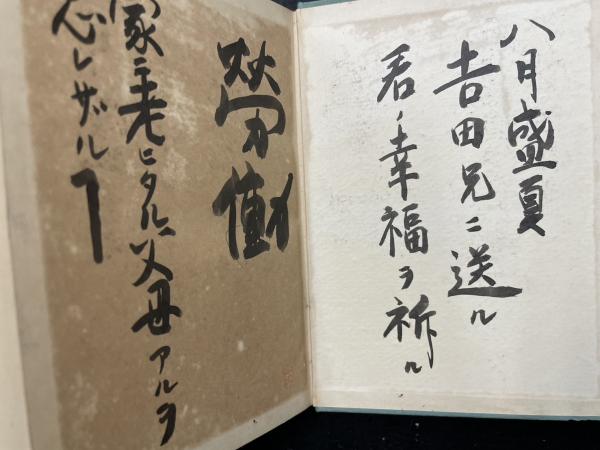 八月盛夏
吉田兄ニ送ル
君ノ幸福ヲ祈ル
労働
家ニ老ヒタル父母アルヲ
忘レザルヿ